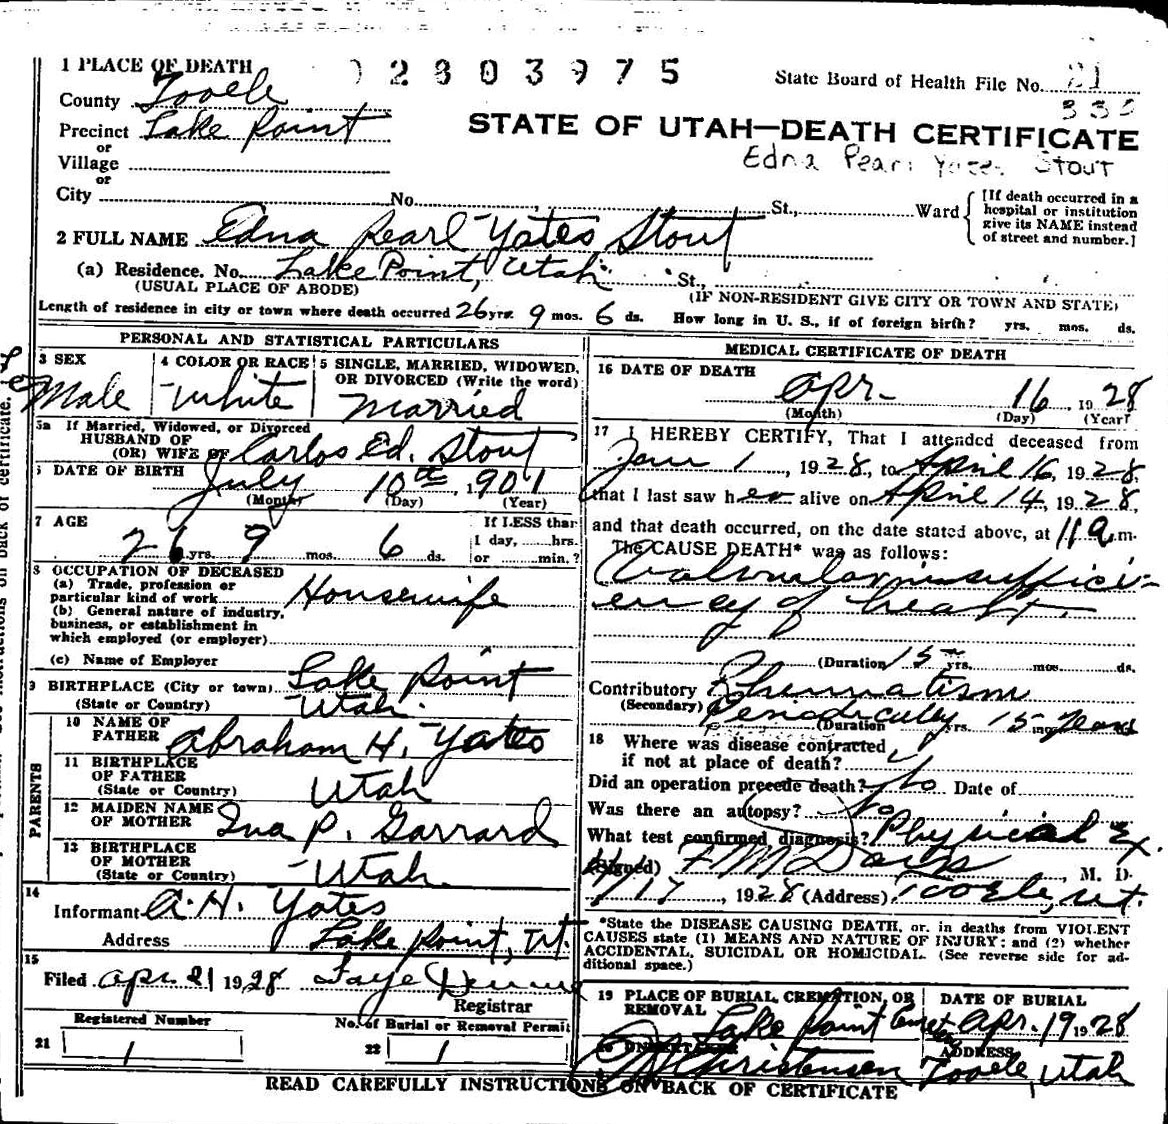 1 PLACE OF DEATH
02803975
State Board of Health File No. 21
County Tooele
Precinct Lake Point
or
Village
or
City No. St., Ward
STATE OF UTAH—DEATH CERTIFICATE
Edna Pearl Yates Stout
[If death occurred in a hospital or institution give its NAME instead of street and number.]
2 FULL NAME Edna Pearl Yates Stout
(a) Residence. No. Lake Point, Utah St.,
(USUAL PLACE OF ABODE)
(IF NON-RESIDENT GIVE CITY OR TOWN AND STATE)
Length of residence in city or town where death occurred 26 yrs. 9 mos. 6 ds. How long in U. S., if of foreign birth? yrs. mos. ds.
PERSONAL AND STATISTICAL PARTICULARS
3 SEX
Fe Male
4 COLOR OR RACE
White
5 SINGLE, MARRIED, WIDOWED, OR DIVORCED (Write the word)
Married
5a If Married, Widowed, or Divorced
HUSBAND OF
(OR) WIFE OF Carlos Ed. Stout
DATE OF BIRTH
July 10th, 1901
(Month) (Day) (Year)
7 AGE
26 yrs. 9 mos. 6 ds.
If LESS than
1 day, hrs.
or min.?
8 OCCUPATION OF DECEASED
(a) Trade, profession or particular kind of work Housewife
(b) General nature of industry, business, or establishment in which employed (or employer)
(c) Name of Employer
9 BIRTHPLACE (City or town) Lake Point
(State or Country) Utah.
PARENTS
10 NAME OF FATHER Abraham H. Yates
11 BIRTHPLACE OF FATHER
(State or Country) Utah
12 MAIDEN NAME OF MOTHER Ina P. Garrard
13 BIRTHPLACE OF MOTHER
(State or Country) Utah
14
Informant A. H. Yates
Address Lake Point, Ut.
15
Filed Apr. 21 1928 Faye
Registrar
Registered Number
21 1
No. of Burial or Removal Permit
22 1
MEDICAL CERTIFICATE OF DEATH
16 DATE OF DEATH
Apr. 16 1928
(Month) (Day) (Year)
17 I HEREBY CERTIFY, That I attended deceased from
Jan 1, 1928, to April 16, 1928,
that I last saw her alive on April 14, 1928,
and that death occurred, on the date stated above, at 11 a.m.
The CAUSE DEATH* was as follows:
Valvular insuffici-
ency of heart.
(Duration 15 yrs. mos. ds.
Contributory Rheumatism
(Secondary) Periodically 15 years
(Duration yrs. mos. ds.
18 Where was disease contracted
if not at place of death?
Did an operation precede death? No Date of
Was there an autopsy? No
What test confirmed diagnosis? Physical Ex.
(Signed) F M Davis, M. D.
4/17, 1928 (Address) Tooele, Ut.
*State the DISEASE CAUSING DEATH, or, in deaths from VIOLENT
CAUSES state (1) MEANS AND NATURE OF INJURY; and (2) whether
ACCIDENTAL, SUICIDAL OR HOMICIDAL. (See reverse side for ad-
ditional space.)
19 PLACE OF BURIAL, CREMATION, OR REMOVAL
Lake Point Cemetery
DATE OF BURIAL
Apr. 19 1928
Christensen
ADDRESS
Tooele, Utah
READ CAREFULLY INSTRUCTIONS ON BACK OF CERTIFICATE